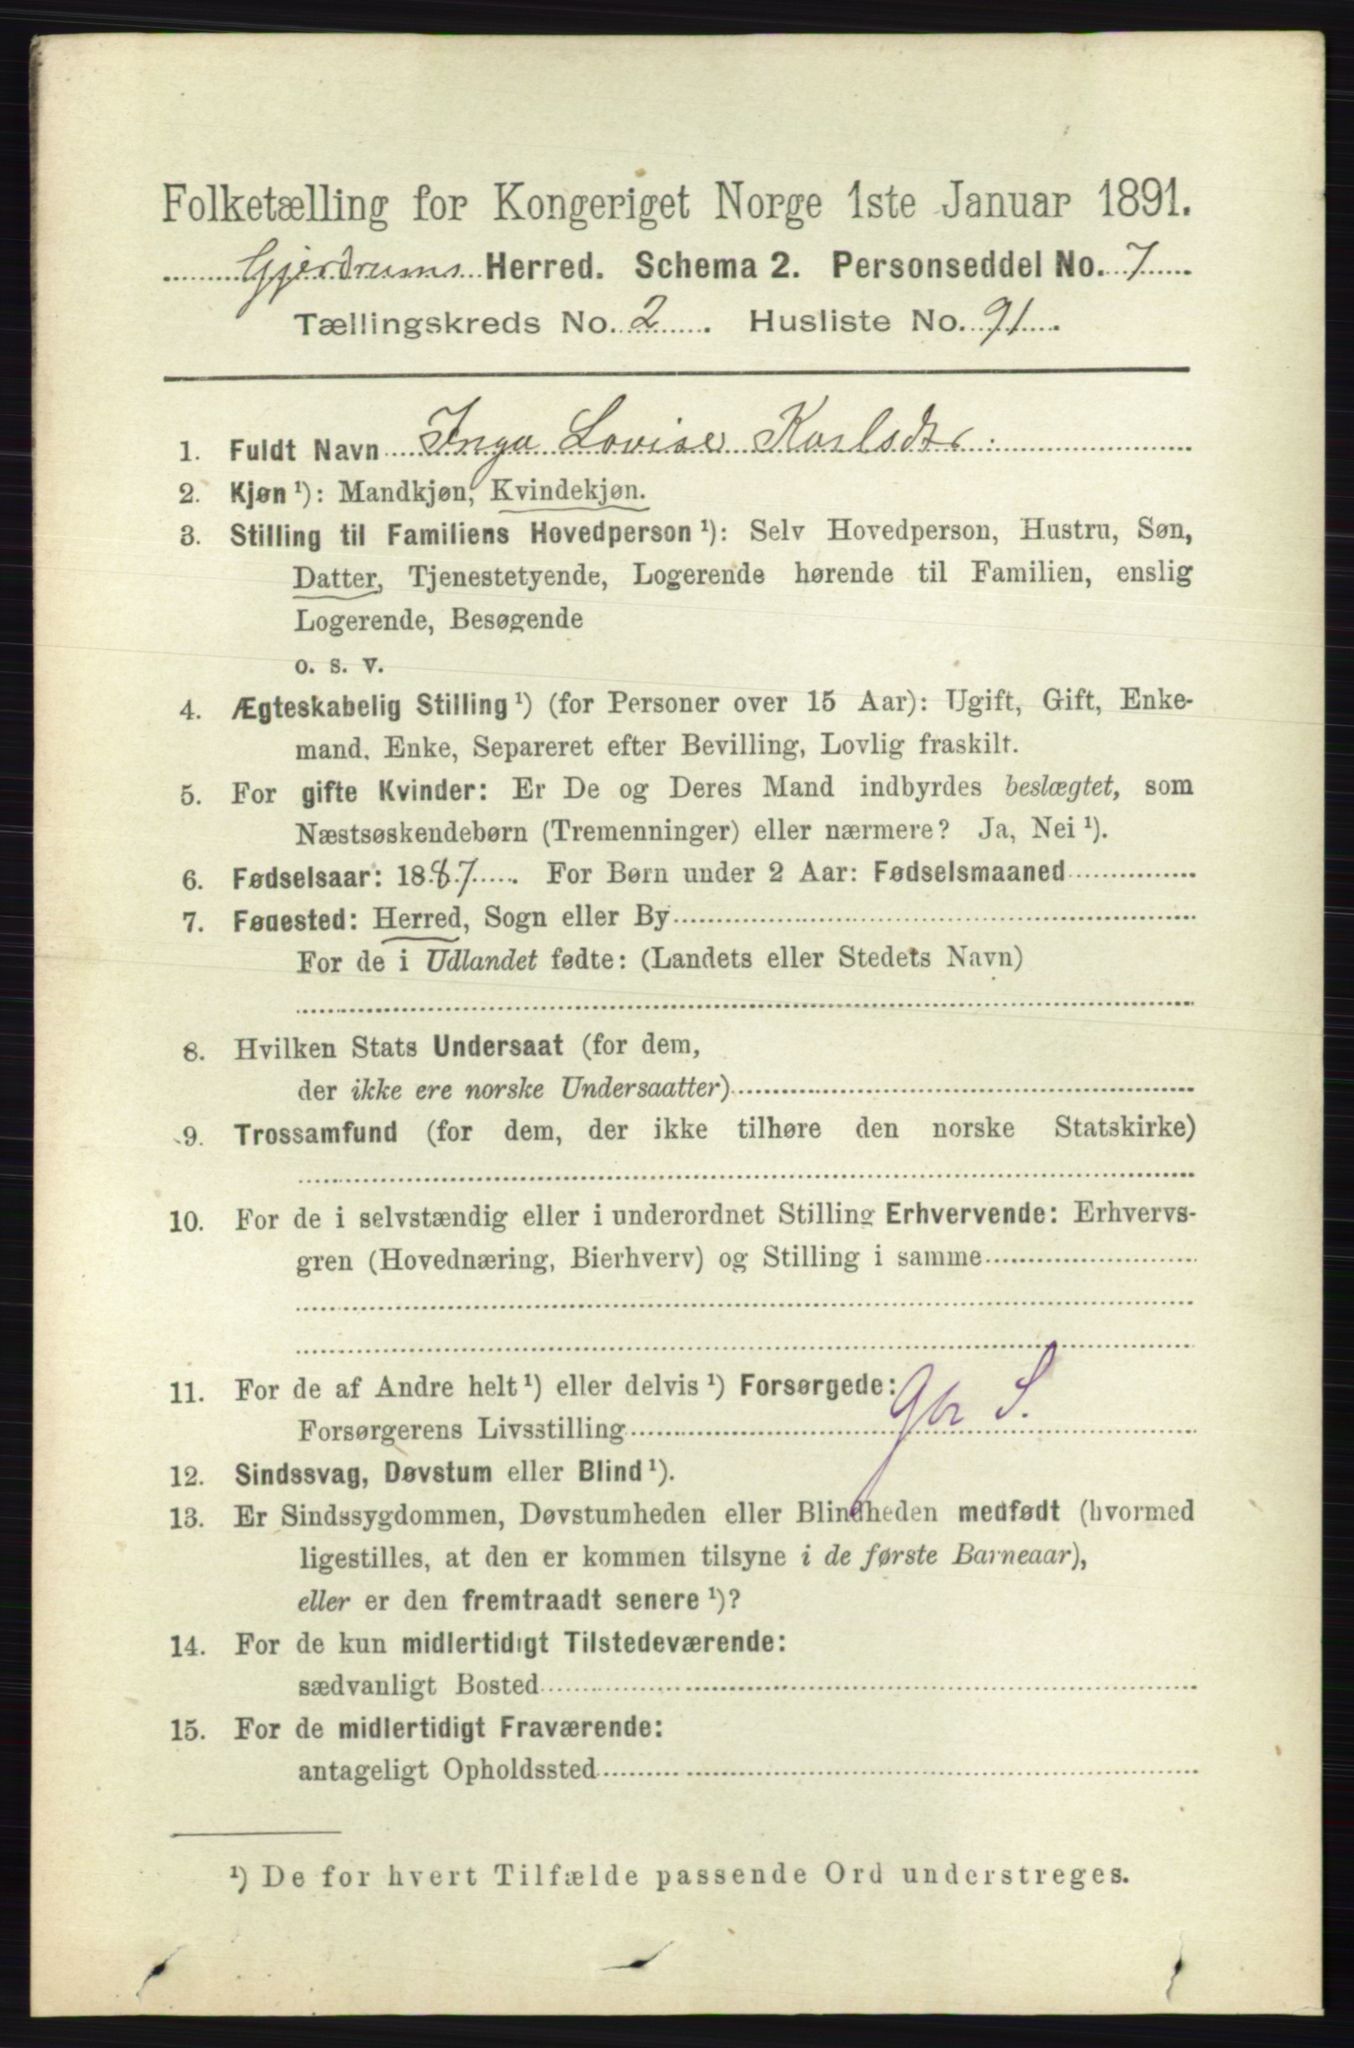 Folketælling for Kongeriget Norge 1ste Januar 1891.
Gjerdrums Herred. Schema 2. Personseddel No. 7
Tællingskreds No. 2. Husliste No. 91.
1. Fuldt Navn Inga Lovise Karlsdtr
2. Kjøn ¹): Mandkjøn, Kvindekjøn.
3. Stilling til Familiens Hovedperson ¹): Selv Hovedperson, Hustru, Søn,
Datter, Tjenestetyende, Logerende hørende til Familien, enslig
Logerende, Besøgende
o. s. v.
4. Ægteskabelig Stilling ¹) (for Personer over 15 Aar): Ugift, Gift, Enke-
mand, Enke, Separeret efter Bevilling, Lovlig fraskilt.
5. For gifte Kvinder: Er De og Deres Mand indbyrdes beslægtet, som
Næstsøskendebørn (Tremenninger) eller nærmere? Ja, Nei ¹).
6. Fødselsaar: 1887. For Børn under 2 Aar: Fødselsmaaned
7. Føuested: Herred, Sogn eller By
For de i Udlandet fødte: (Landets eller Stedets Navn)
8. Hvilken Stats Undersaat (for dem,
der ikke ere norske Undersaatter)
9. Trossamfund (for dem, der ikke tilhøre den norske Statskirke)
10. For de i selvstændig eller i underordnet Stilling Erhvervende: Erhvervs-
gren (Hovednæring, Bierhverv) og Stilling i samme
11. For de af Andre helt ¹) eller delvis ¹) Forsørgede:
Forsørgerens Livsstilling Gbr S.
12. Sindssvag, Døvstum eller Blind ¹).
13. Er Sindssygdommen, Døvstumheden eller Blindheden medfødt (hvormed
ligestilles, at den er kommen tilsyne i de første Barneaar),
eller er den fremtraadt senere ¹)?
14. For de kun midlertidigt Tilstedeværende:
sædvanligt Bosted
15. For de midlertidigt Fraværende:
antageligt Opholdssted
¹) De for hvert Tilfælde passende Ord understreges.